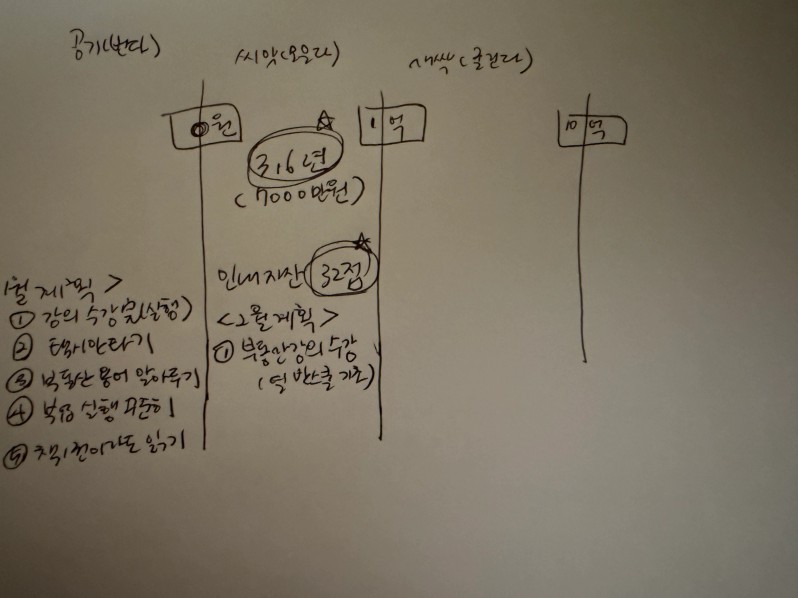 공기(번다)
씨앗(모은다)
새싹(굴린다)
0원
1억
10억
3.6년
(7000만원)
인내자산 32점
1월 계획>
① 강의 수강 및(실행)
② 택시안타기
③ 부동산 용어 알아두기
④ 복습 실행 꾸준히
⑤ 책1권이라도 읽기
<2월 계획>
① 부동산강의 수강
(월 반스쿨 기초)